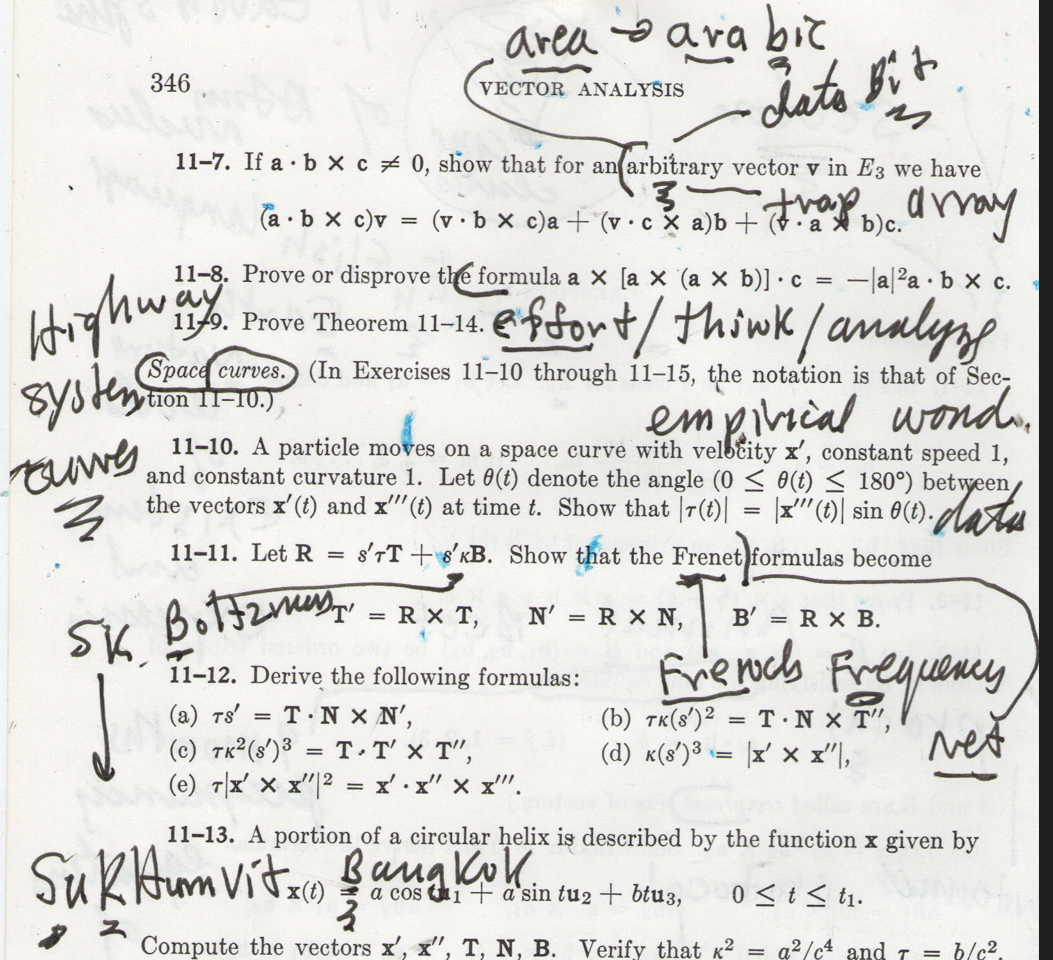 area → arabic
346
VECTOR ANALYSIS
data Bit
11–7. If a · b × c ≠ 0, show that for an arbitrary vector v in E₃ we have
trap array
(a · b × c)v = (v · b × c)a + (v · c × a)b + (v · a × b)c.
11–8. Prove or disprove the formula a × [a × (a × b)] · c = −|a|²a · b × c.
Highway
11–9. Prove Theorem 11–14. effort/think/analyze
Space curves. (In Exercises 11–10 through 11–15, the notation is that of Sec-
system
tion 11–10.)
empirical
11–10. A particle moves on a space curve with velocity x′, constant speed 1,
curves
and constant curvature 1. Let θ(t) denote the angle (0 ≤ θ(t) ≤ 180°) between
the vectors x′(t) and x′′′(t) at time t. Show that |τ(t)| = |x′′′(t)| sin θ(t).
data
11–11. Let R = s′τT + s′κB. Show that the Frenet formulas become
T′ = R × T, N′ = R × N, B′ = R × B.
SK
11–12. Derive the following formulas:
Frequency
(a) τs′ = T · N × N′, (b) τκ(s′)² = T · N × T′′,
(c) τκ²(s′)³ = T · T′ × T′′, (d) κ(s′)³ = |x′ × x′′|,
Net
(e) τ|x′ × x′′|² = x′ · x′′ × x′′′.
11–13. A portion of a circular helix is described by the function x given by
SuKHumVit Bangkok
x(t) = a cos tu₁ + a sin tu₂ + btu₃, 0 ≤ t ≤ t₁.
Compute the vectors x′, x′′, T, N, B. Verify that κ² = a²/c⁴ and τ = b/c².